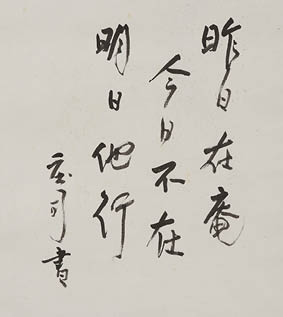 昨日在庵
今日不在
明日他行
書